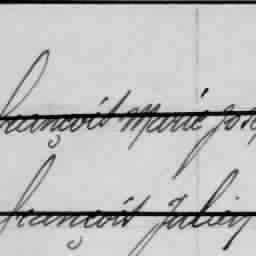 François Marie Jos
François Julien